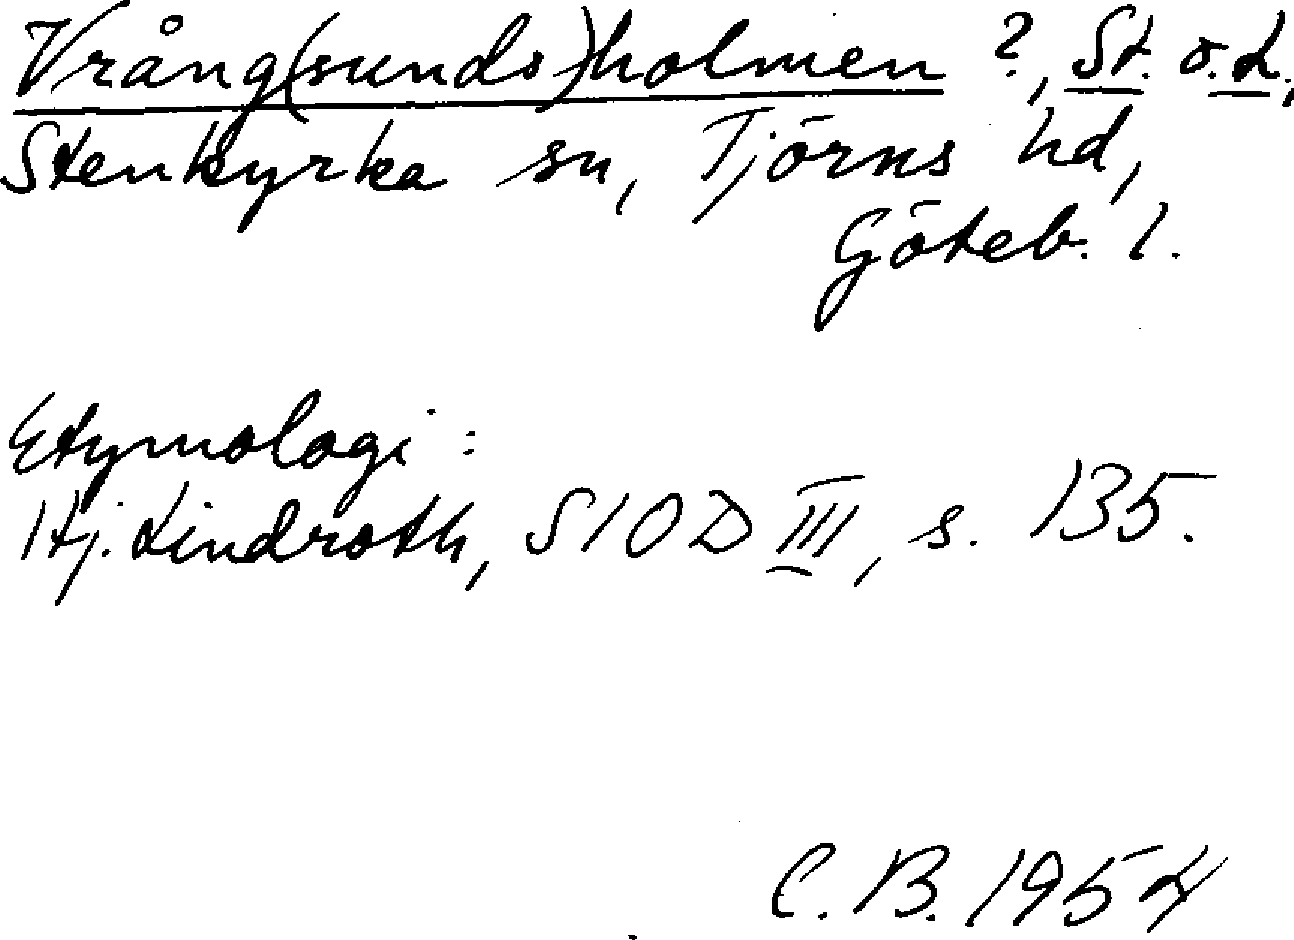 Vrång(sunds)holmen ?, St. o. L.,
Stenkyrka sn, Tjörns hd,
Göteb. l.
Etymologi:
Hj. Lindroth, SIOD III, s. 135.
C. B. 1954